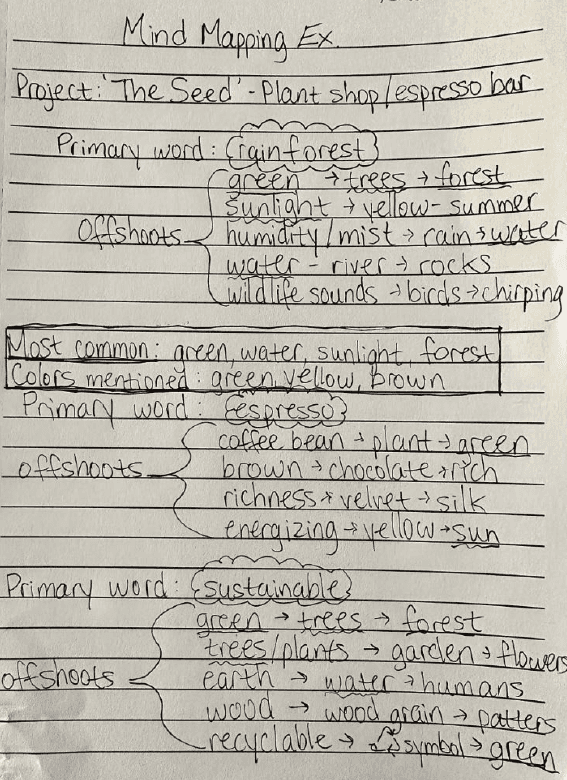 Mind Mapping Ex.
Project: 'The Seed' - Plant shop/espresso bar
Primary word: {rainforest}
green → trees → forest
sunlight → yellow - summer
Offshoots humidity/mist → rain → water
water - river → rocks
wildlife sounds → birds → chirping
Most common: green, water, sunlight, forest
Colors mentioned: green, yellow, brown
Primary word: {espresso}
coffee bean → plant → green
offshoots brown → chocolate → rich
richness → velvet → silk
energizing → yellow → sun
Primary word: {sustainable}
green → trees → forest
trees/plants → garden → flowers
offshoots earth → water → humans
wood → wood grain → patters
recyclable → ♲ symbol → green